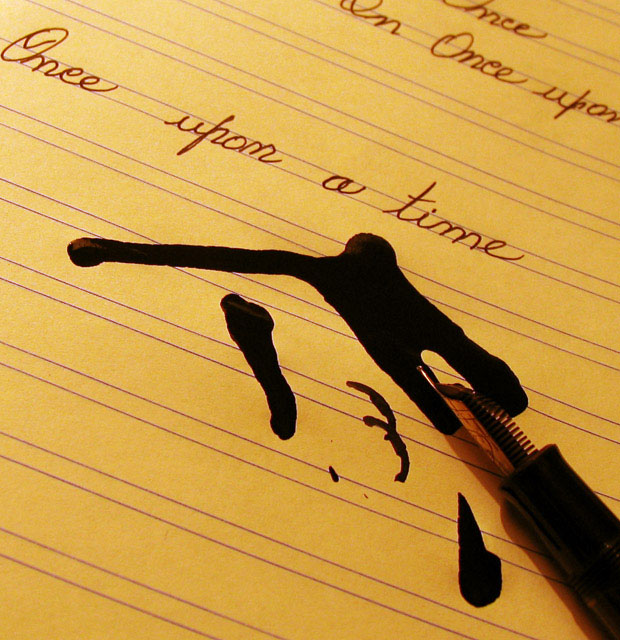 Once
On Once upon
Once upon a time